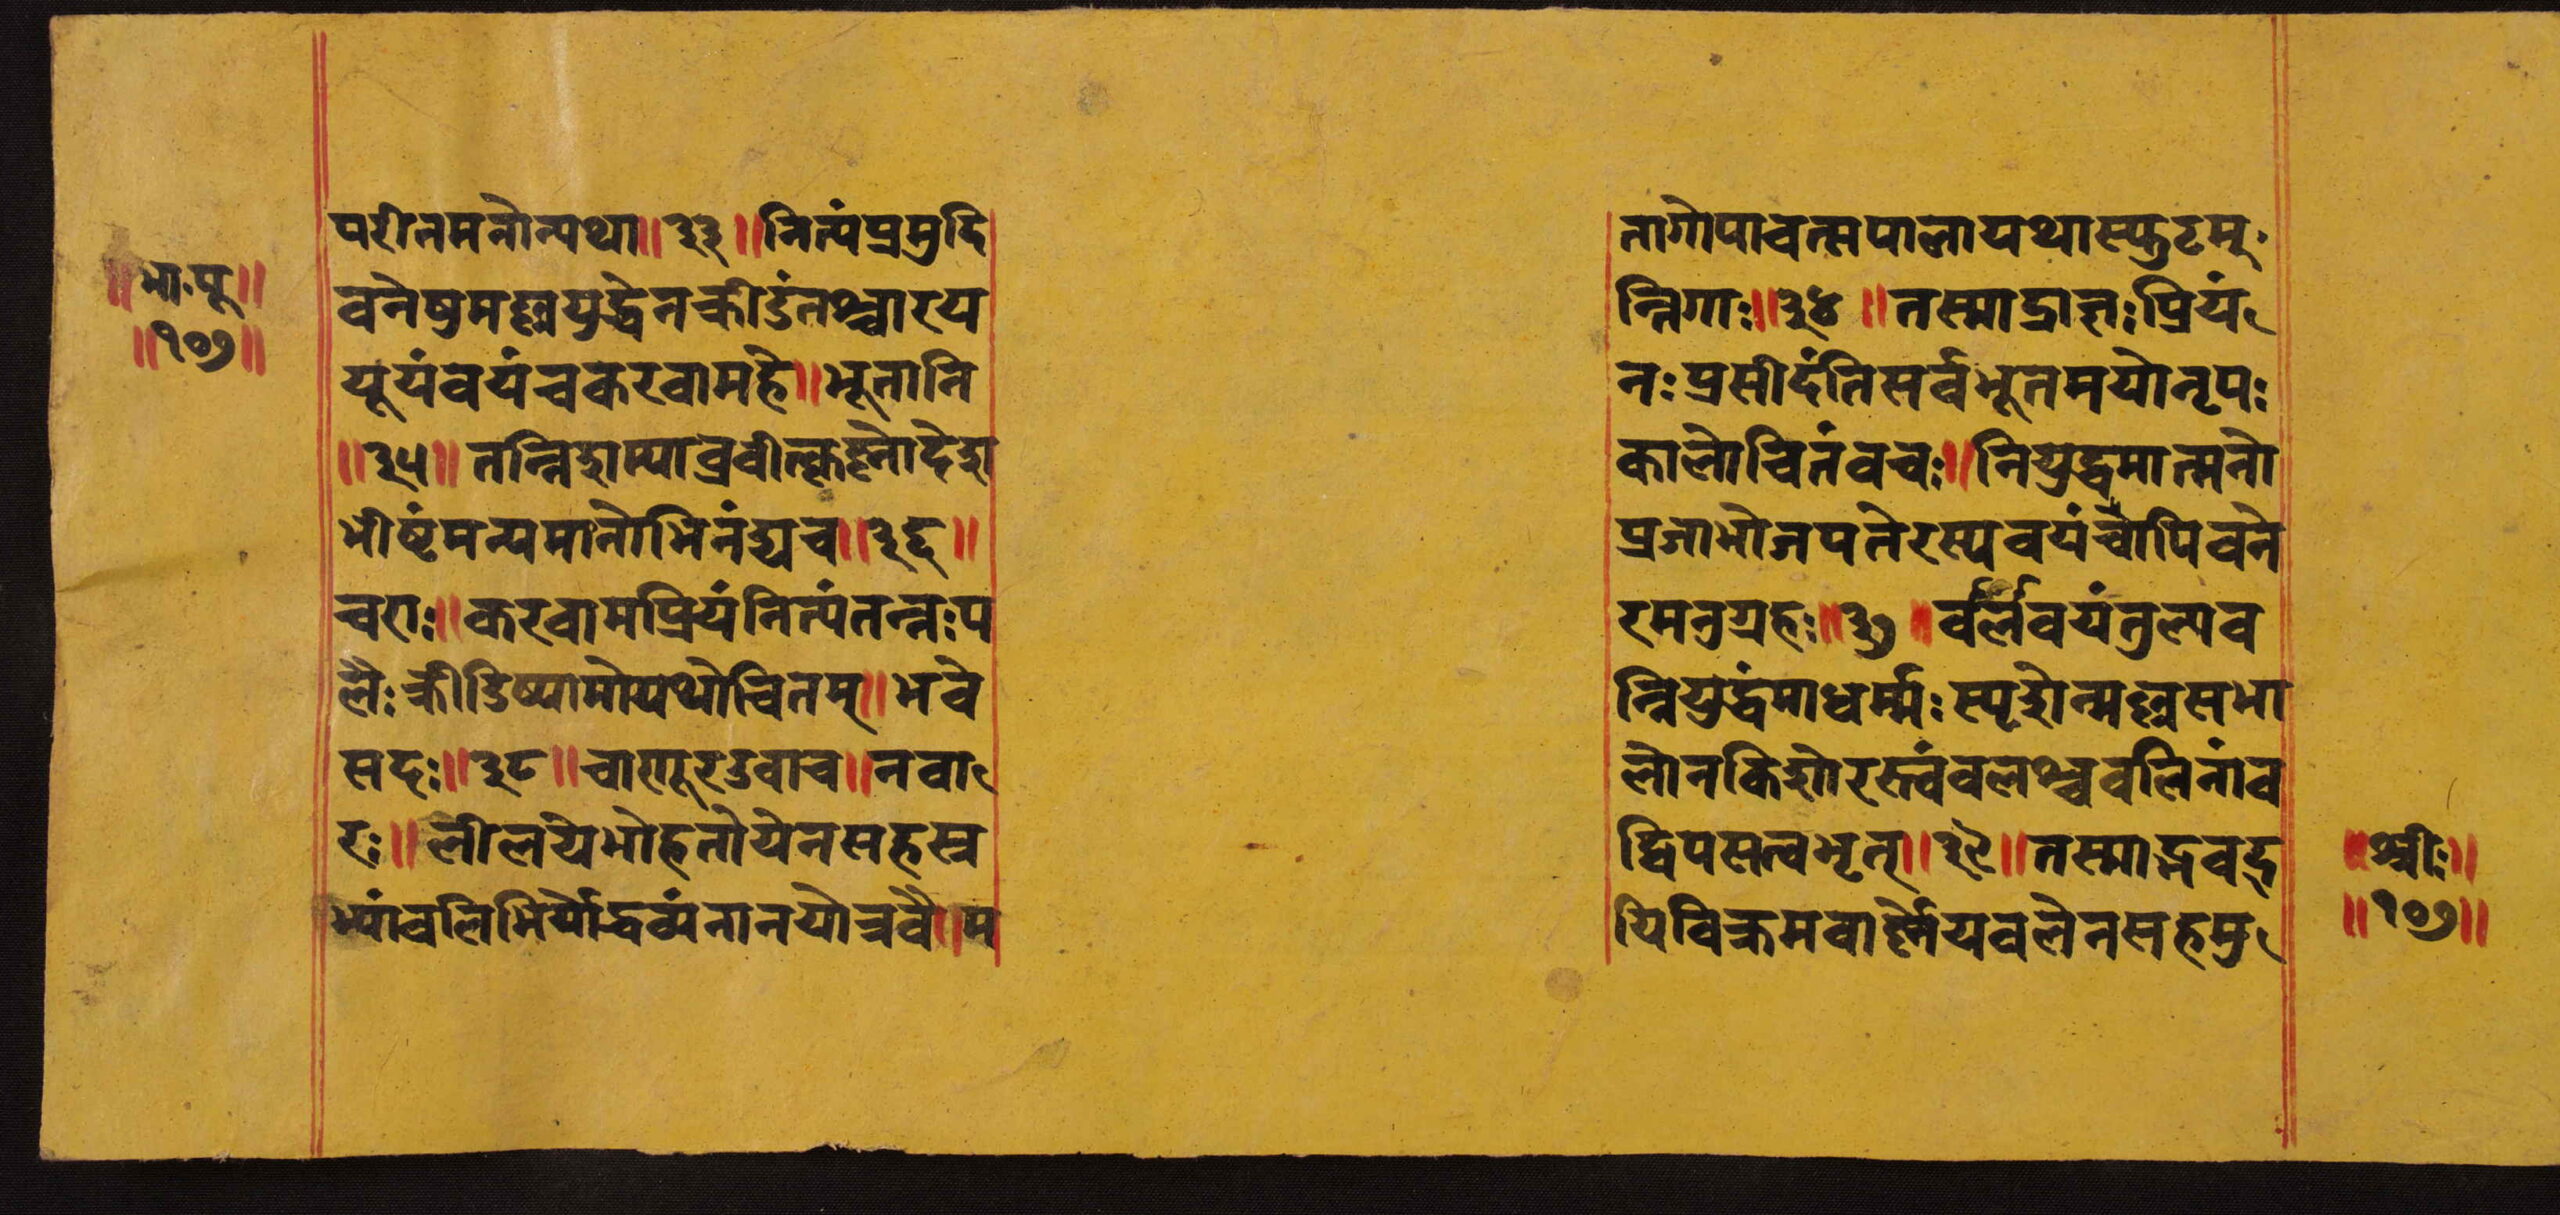 ॥भा.पु॥
॥१०७॥
परीतमतोन्यथा॥३३॥नित्यंप्रमुदि तागोपावत्सपालायथास्फुटम्
वनेषुमल्लयुद्धेनक्रीडंतश्चारय न्तिगाः॥३४॥तस्माद्राज्ञःप्रियं
यूयंवयंचकरवामहै॥भूतानि नःप्रसीदंतिसर्वभूतमयोनृपः
॥३५॥तन्निशम्याव्रवीत्कृष्णोदेश कालोचितंवचः॥नियुद्धमात्मनो
भीष्टंमन्यमानोभिनंद्यच॥३६॥ प्रजाभोजपतेरस्यवयंचापिवने
चराः॥करवामप्रियंनित्यंतन्नःप रमनुग्रहः॥३७॥ वयंतुल्यव
लैःक्रीडिष्यामोयथोचितम्॥भवे न्नियुद्धंमाधर्म्मःस्पृशेन्मल्लसभा
सदः॥३८॥चाणूरउवाच॥नवा लोनकिशोरस्त्वंवलश्चवलिनांव
रः॥लीलयेभोहतोयेनसहस्र द्विपसत्वभृत्॥३९॥तस्माद्भवद्
भ्यांवलिभिर्योद्धव्यंनानयोत्रवै॥म यिविक्रमवार्ष्णेयवलेनसहमु
॥श्रीः॥
॥१०७॥